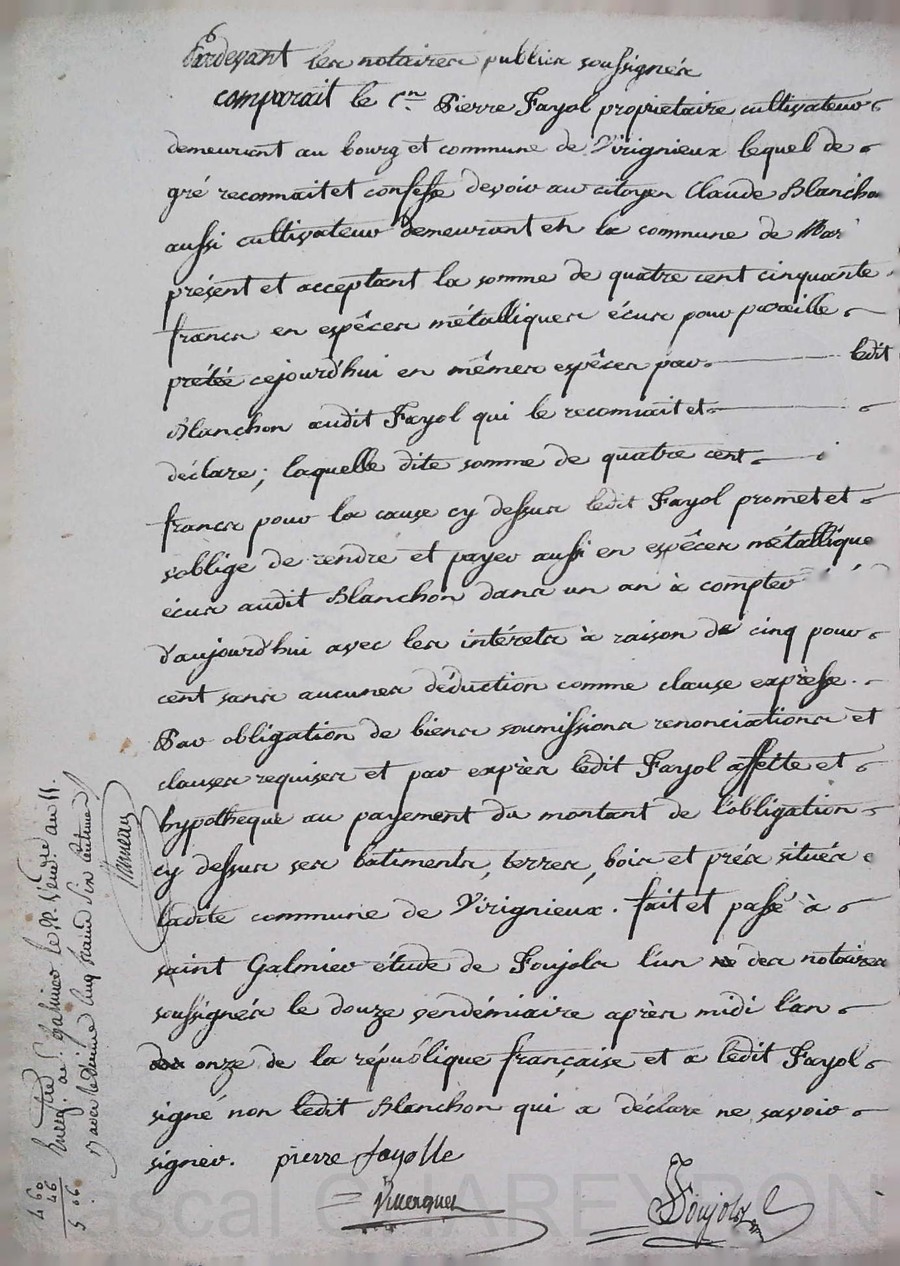 Pardevant les notaires publics soussignés
comparait le Cen Pierre Fayol proprietaire cultivateur
demeurant au bourg et commune de Virignieux lequel de
gré reconnait et confesse devoir au citoyen Claude Blancho
aussi cultivateur demeurant en la commune de Mar
présent et acceptant la somme de quatre cent cinquante
francs en espêces métalliques écus pour pareille
pretée cejourd'hui en mêmes espêces par ledit
Blanchon audit Fayol qui le reconnait et
déclare; laquelle dite somme de quatre cent
francs pour la cause cy dessus ledit Fayol promet et
s'oblige de rendre et payer aussi en espêces métallique
écus audit Blanchon dans un an à compter
d'aujourd'hui avec les intérets à raison de cinq pour
cent sans aucunes déduction comme clause expresse.
Par obligation de biens soumissions renonciations et
clauses requises et par exprès ledit Fayol affecte et
hypotheque au payement du montant de l'obligation
cy dessus ses bâtiments, terres, bois et prés situés
ladite commune de Virignieux. fait et passé à
saint Galmier étude de Foujols l'un des notaires
soussignés le douze vendémiaire après midi l'an
onze de la république française et a ledit Fayol
signé non ledit Blanchon qui a déclaré ne savoir
signer. pierre fayolle
Foujols
Enregtré a St. galmier le 22 Vendre an 11.
4 60
46
5. 06.
Pascal CHAREYRON